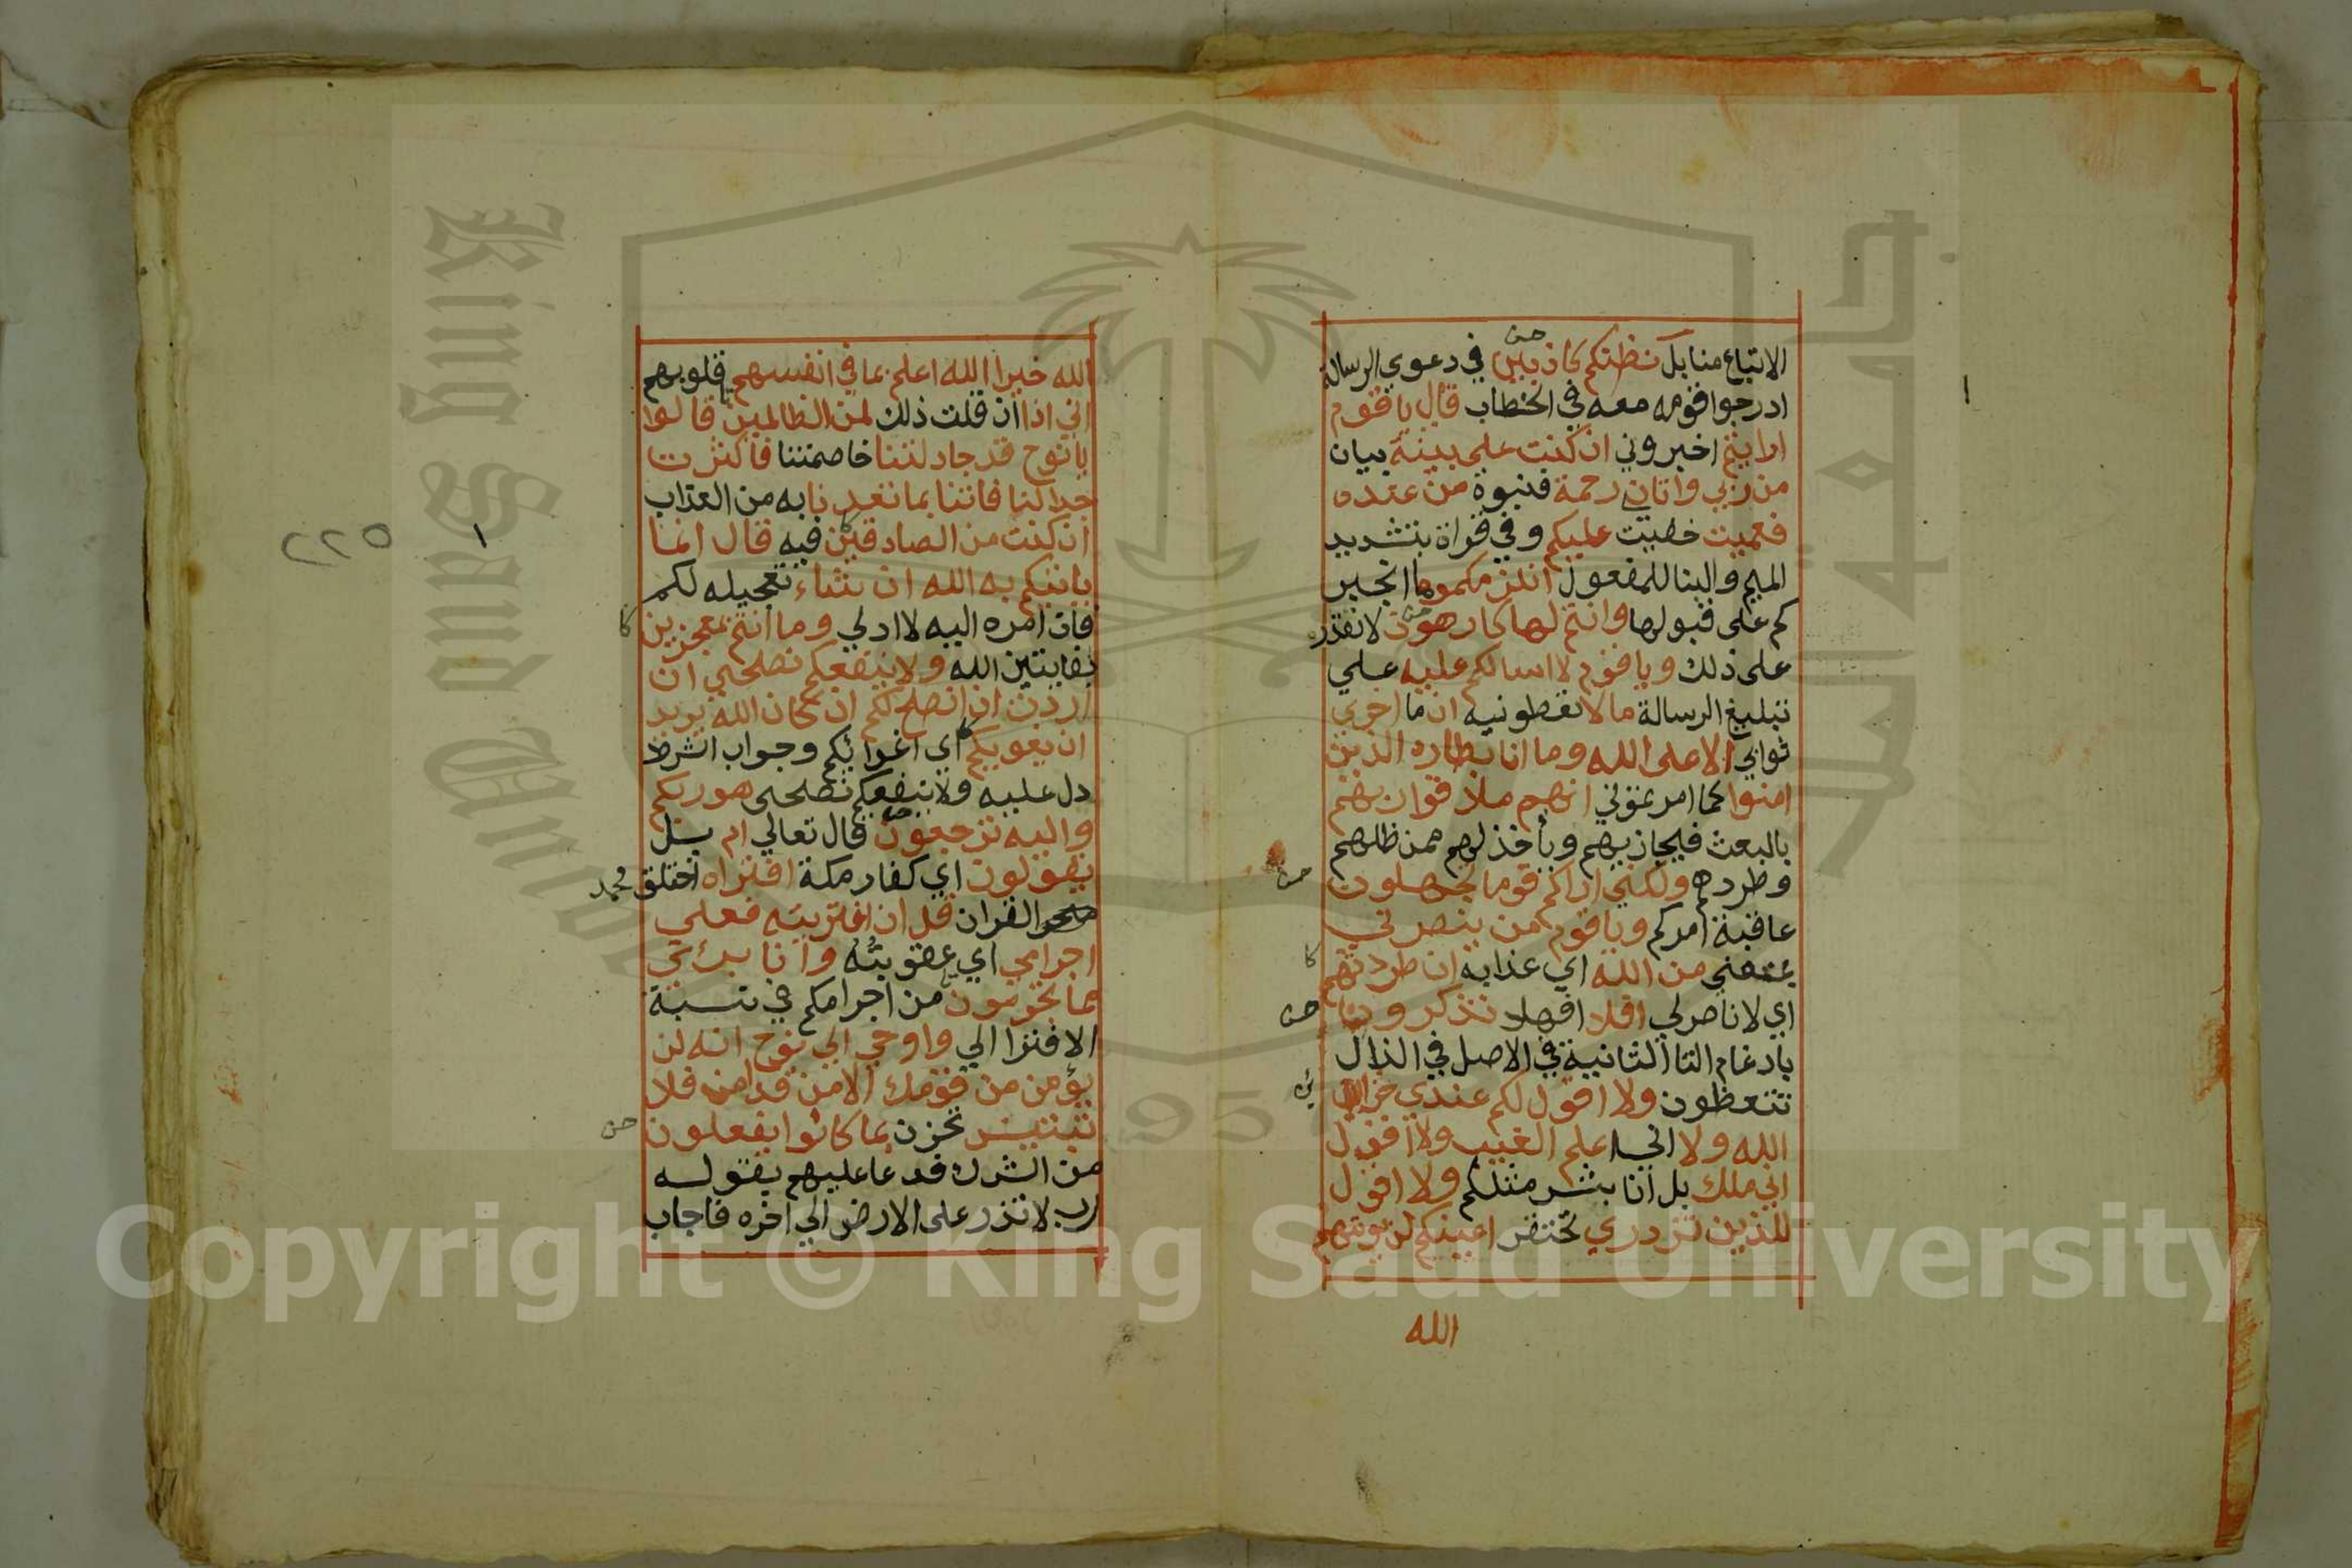 الاتباع منا بل نظنكم كاذبين في دعوي الرسالة
ادرجوا قومه معه في الخطاب قال ياقوم
ارايتم اخبروني ان كنت علي بينة بيان
من ربي واتاني رحمة فنبوة من عنده
فعميت خفيت عليكم وفي قراة بتشديد
الميم والبنا للمفعول انلزمكموها انجبر
كم على قبولها وانتم لها كارهون لا نقدر
على ذلك وياقوم لا اسالكم عليه علي
تبليغ الرسالة مالا تعطونيه ان ما اجري
ثوابي الا على الله وما انا بطارد الذين
امنوا كما امرتموني انهم ملاقوا ربهم
بالبعث فيجازيهم وياخذ لهم ممن ظلمهم
وطردهم ولكني اراكم قوما تجهلون
عاقبة امركم وياقوم من ينصرني
يمنعني من الله اي عذابه ان طردتهم
اي لا ناصر لي افلا افهلا تذكرون
بادغام التا الثانية في الاصل في الذال
تتعظون ولا اقول لكم عندي خزائن
الله ولا اني اعلم الغيب ولا اقول
اني ملك بل انا بشر مثلكم ولا اقول
للذين تزدري تحتقر اعينكم لن يوتيهم
الله
الله خيرا الله اعلم بما في انفسهم قلوبهم
اني اذا ان قلت ذلك لمن الظالمين قالوا
يانوح قد جادلتنا خاصمتنا فاكثرت
جدالنا فاتنا بما تعدنا به من العذاب
ان كنت من الصادقين فيه قال انما
ياتيكم به الله ان شاء تعجيله لكم
فان امره اليه لا ادلي وما انتم بمعجزين
بفايتين الله ولا ينفعكم نصلحي ان
اردت ان انصح لكم ان كان الله يريد
ان يغويكم اي اغوائكم وجواب الشرط
دل عليه ولا ينفعكم نصلحى هو ربكم
واليه ترجعون قال تعالي ام بل
يقولون اي كفار مكة افتراه اختلق محمد
القران قل ان افتريته فعلي
اجرامي اي عقوبته وانا برئ
مما تجرمون من اجرامكم في نسبة
الافترا الي واوحي الي نوح انه لن
يؤمن من قومك الا من قد امن فلا
تبتئس تحزن بما كانوا يفعلون
من الشرك فدعا عليهم بقوله
رب لا تذر على الارض الي اخره فاجاب
٢٢٥
King Saud University
جامعة الملك سعود
1957
Copyright © King Saud University